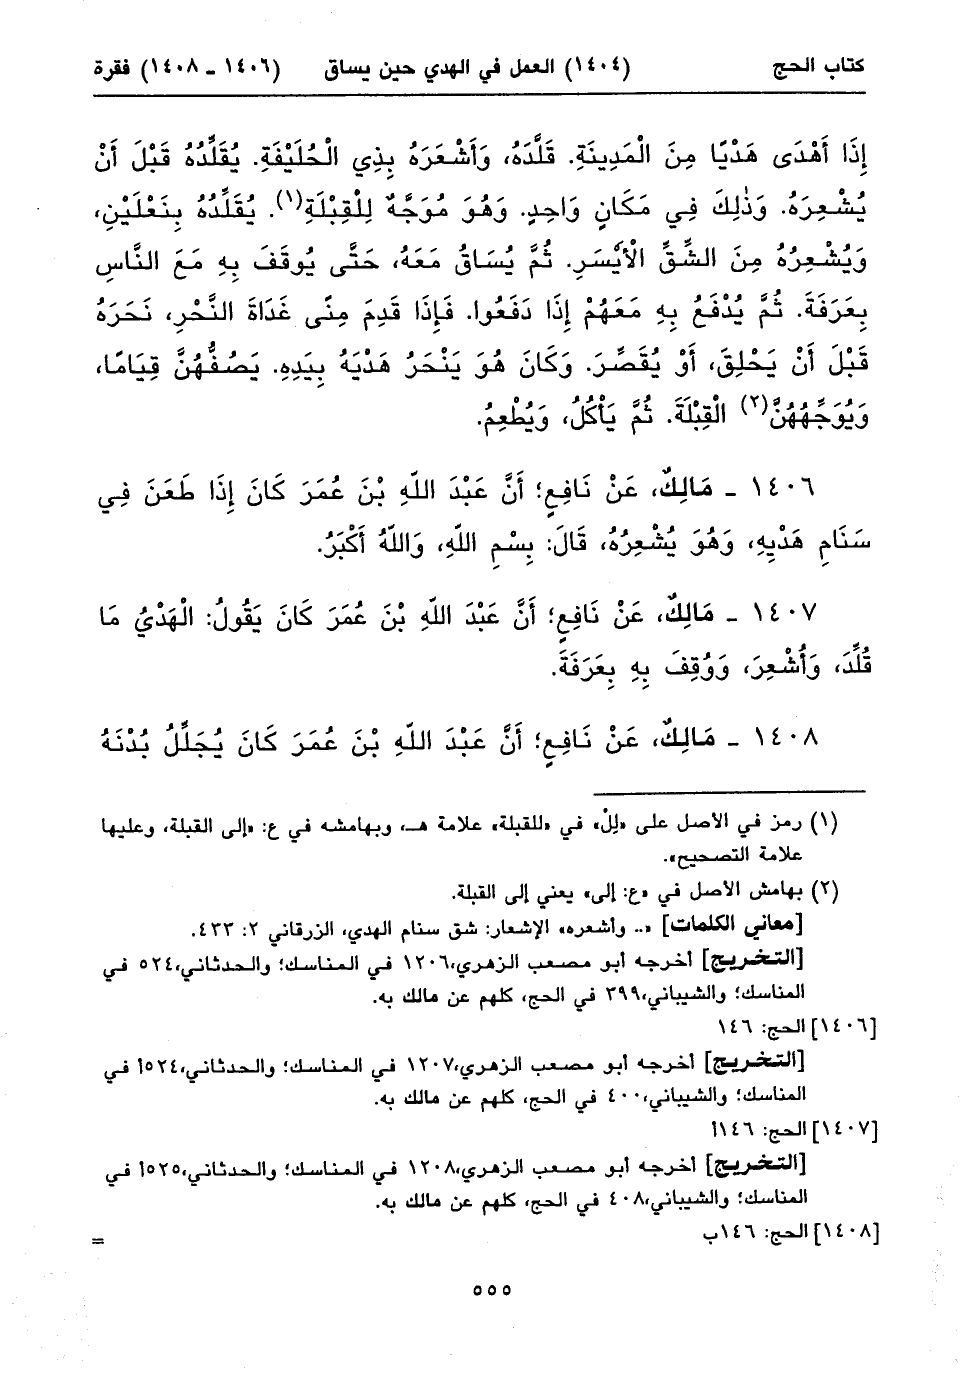 كتاب الحج (١٤٠٤) العمل في الهدي حين يساق (١٤٠٦ - ١٤٠٨) فقرة
إِذَا أَهْدَى هَدْيًا مِنَ الْمَدِينَةِ. قَلَّدَهُ، وَأَشْعَرَهُ بِذِي الْحُلَيْفَةِ. يُقَلِّدُهُ قَبْلَ أَنْ
يُشْعِرَهُ. وَذٰلِكَ فِي مَكَانٍ وَاحِدٍ. وَهُوَ مُوَجَّهٌ لِلْقِبْلَةِ(١). يُقَلِّدُهُ بِنَعْلَيْنِ،
وَيُشْعِرُهُ مِنَ الشِّقِّ الْأَيْسَرِ. ثُمَّ يُسَاقُ مَعَهُ، حَتَّى يُوقَفَ بِهِ مَعَ النَّاسِ
بِعَرَفَةَ. ثُمَّ يُدْفَعُ بِهِ مَعَهُمْ إِذَا دَفَعُوا. فَإِذَا قَدِمَ مِنًى غَدَاةَ النَّحْرِ، نَحَرَهُ
قَبْلَ أَنْ يَحْلِقَ، أَوْ يُقَصِّرَ. وَكَانَ هُوَ يَنْحَرُ هَدْيَهُ بِيَدِهِ. يَصُفُّهُنَّ قِيَامًا،
وَيُوَجِّهُهُنَّ(٢) الْقِبْلَةَ. ثُمَّ يَأْكُلُ، وَيُطْعِمُ.
١٤٠٦ - مَالِكٌ، عَنْ نَافِعٍ؛ أَنَّ عَبْدَ اللّهِ بْنَ عُمَرَ كَانَ إِذَا طَعَنَ فِي
سَنَامِ هَدْيِهِ، وَهُوَ يُشْعِرُهُ، قَالَ: بِسْمِ اللّهِ، وَاللّهُ أَكْبَرُ.
١٤٠٧ - مَالِكٌ، عَنْ نَافِعٍ؛ أَنَّ عَبْدَ اللّهِ بْنَ عُمَرَ كَانَ يَقُولُ: الْهَدْيُ مَا
قُلِّدَ، وَأُشْعِرَ، وَوُقِفَ بِهِ بِعَرَفَةَ.
١٤٠٨ - مَالِكٌ، عَنْ نَافِعٍ؛ أَنَّ عَبْدَ اللّهِ بْنَ عُمَرَ كَانَ يُجَلِّلُ بُدْنَهُ
(١) رمز في الأصل على «لِلْ» في «للقبلة» علامة هـ، وبهامشه في ع: «إلى القبلة، وعليها
علامة التصحيح».
(٢) بهامش الأصل في «ع: إلى» يعني إلى القبلة.
[معاني الكلمات] «.. وأشعره» الإشعار: شق سنام الهدي، الزرقاني ٢: ٤٣٣.
[التخريج] أخرجه أبو مصعب الزهري،١٢٠٦ في المناسك؛ والحدثاني،٥٢٤ في
المناسك؛ والشيباني،٣٩٩ في الحج، كلهم عن مالك به.
[١٤٠٦] الحج: ١٤٦
[التخريج] أخرجه أبو مصعب الزهري،١٢٠٧ في المناسك؛ والحدثاني،٥٢٤أ في
المناسك؛ والشيباني،٤٠٠ في الحج، كلهم عن مالك به.
[١٤٠٧] الحج: ١٤٦أ
[التخريج] أخرجه أبو مصعب الزهري،١٢٠٨ في المناسك؛ والحدثاني،٥٢٥أ في
المناسك؛ والشيباني،٤٠٨ في الحج، كلهم عن مالك به.
[١٤٠٨] الحج: ١٤٦ب =
٥٥٥